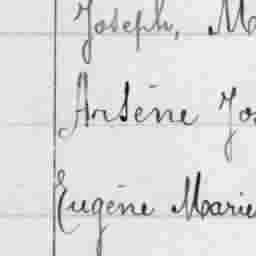 Joseph, M
Arsène Jos
Eugène Marie